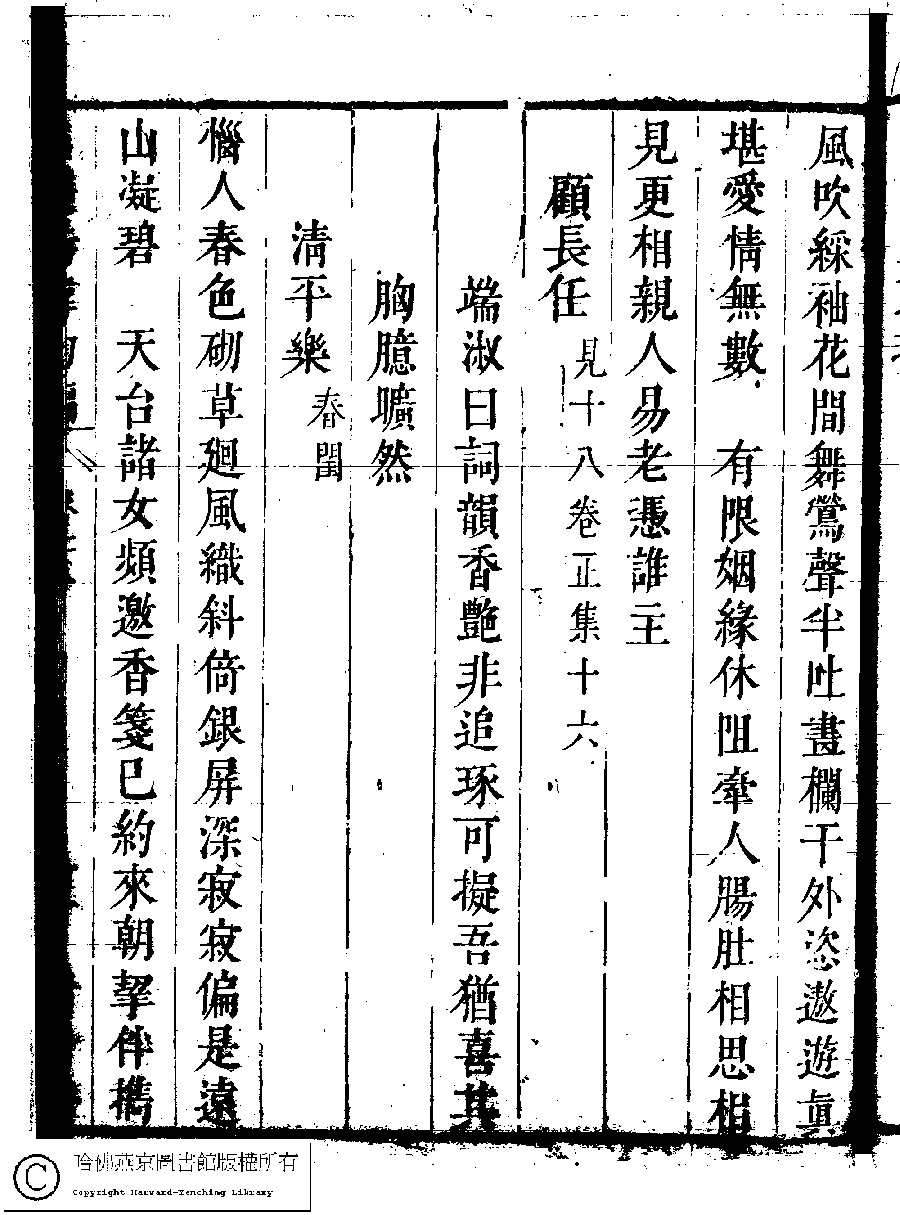 風吹綵袖花間舞鶯聲半吐畫欄干外恣遨遊真
堪愛情無數　有限姻緣休阻牽人腸肚相思相
見更相親人易老憑誰主
顧長任見十八卷正集十六
端淑曰詞韻香艷非追琢可擬吾猶喜其
胸臆曠然
清平樂春閨
惱人春色砌草廻風織斜倚銀屏深寂寂偏是遠
山凝碧　天台諸女頻邀香箋已約來朝挈伴攜
哈佛燕京圖書館版權所有
Copyright Harvard-Yenching Library